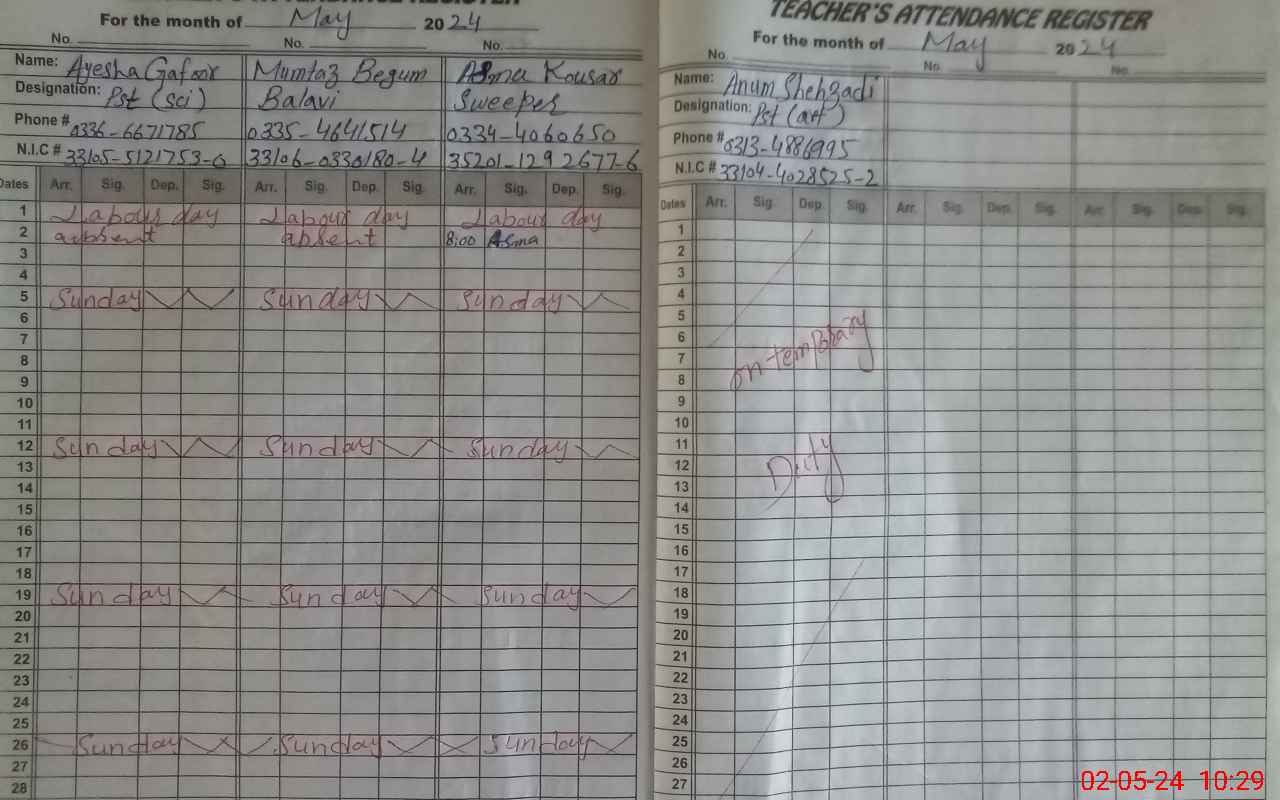 TEACHER'S ATTENDANCE REGISTER
For the month of May 2024
No. No. No.
Name: Ayesha Gafoor Mumtaz Begum Asma Kousar
Designation: Pst (sci) Balavi Sweeper
Phone # 0336-6671785 0335-4641514 0334-4060650
N.I.C # 33105-5121753-0 33106-0330180-4 35201-1292677-6
Dates Arr. Sig. Dep. Sig. Arr. Sig. Dep. Sig. Arr. Sig. Dep. Sig.
1 Labour day Labour day Labour day
2 aubsent absent 8:00 Asma
3
4
5 Sunday Sunday Sunday
6
7
8
9
10
11
12 Sunday Sunday Sunday
13
14
15
16
17
18
19 Sunday Sunday Sunday
20
21
22
23
24
25
26 Sunday Sunday Sunday
27
28
TEACHER'S ATTENDANCE REGISTER
For the month of May 2024
No. No. No.
Name: Anum Shehzadi
Designation: Pst (art)
Phone # 0313-4886995
N.I.C # 33104-4028525-2
Dates Arr. Sig. Dep. Sig. Arr. Sig. Dep. Sig. Arr. Sig. Dep. Sig.
1
2
3
4
5
6
7 on temporary
8
9
10
11
12 Duty
13
14
15
16
17
18
19
20
21
22
23
24
25
26
27
02-05-24 10:29